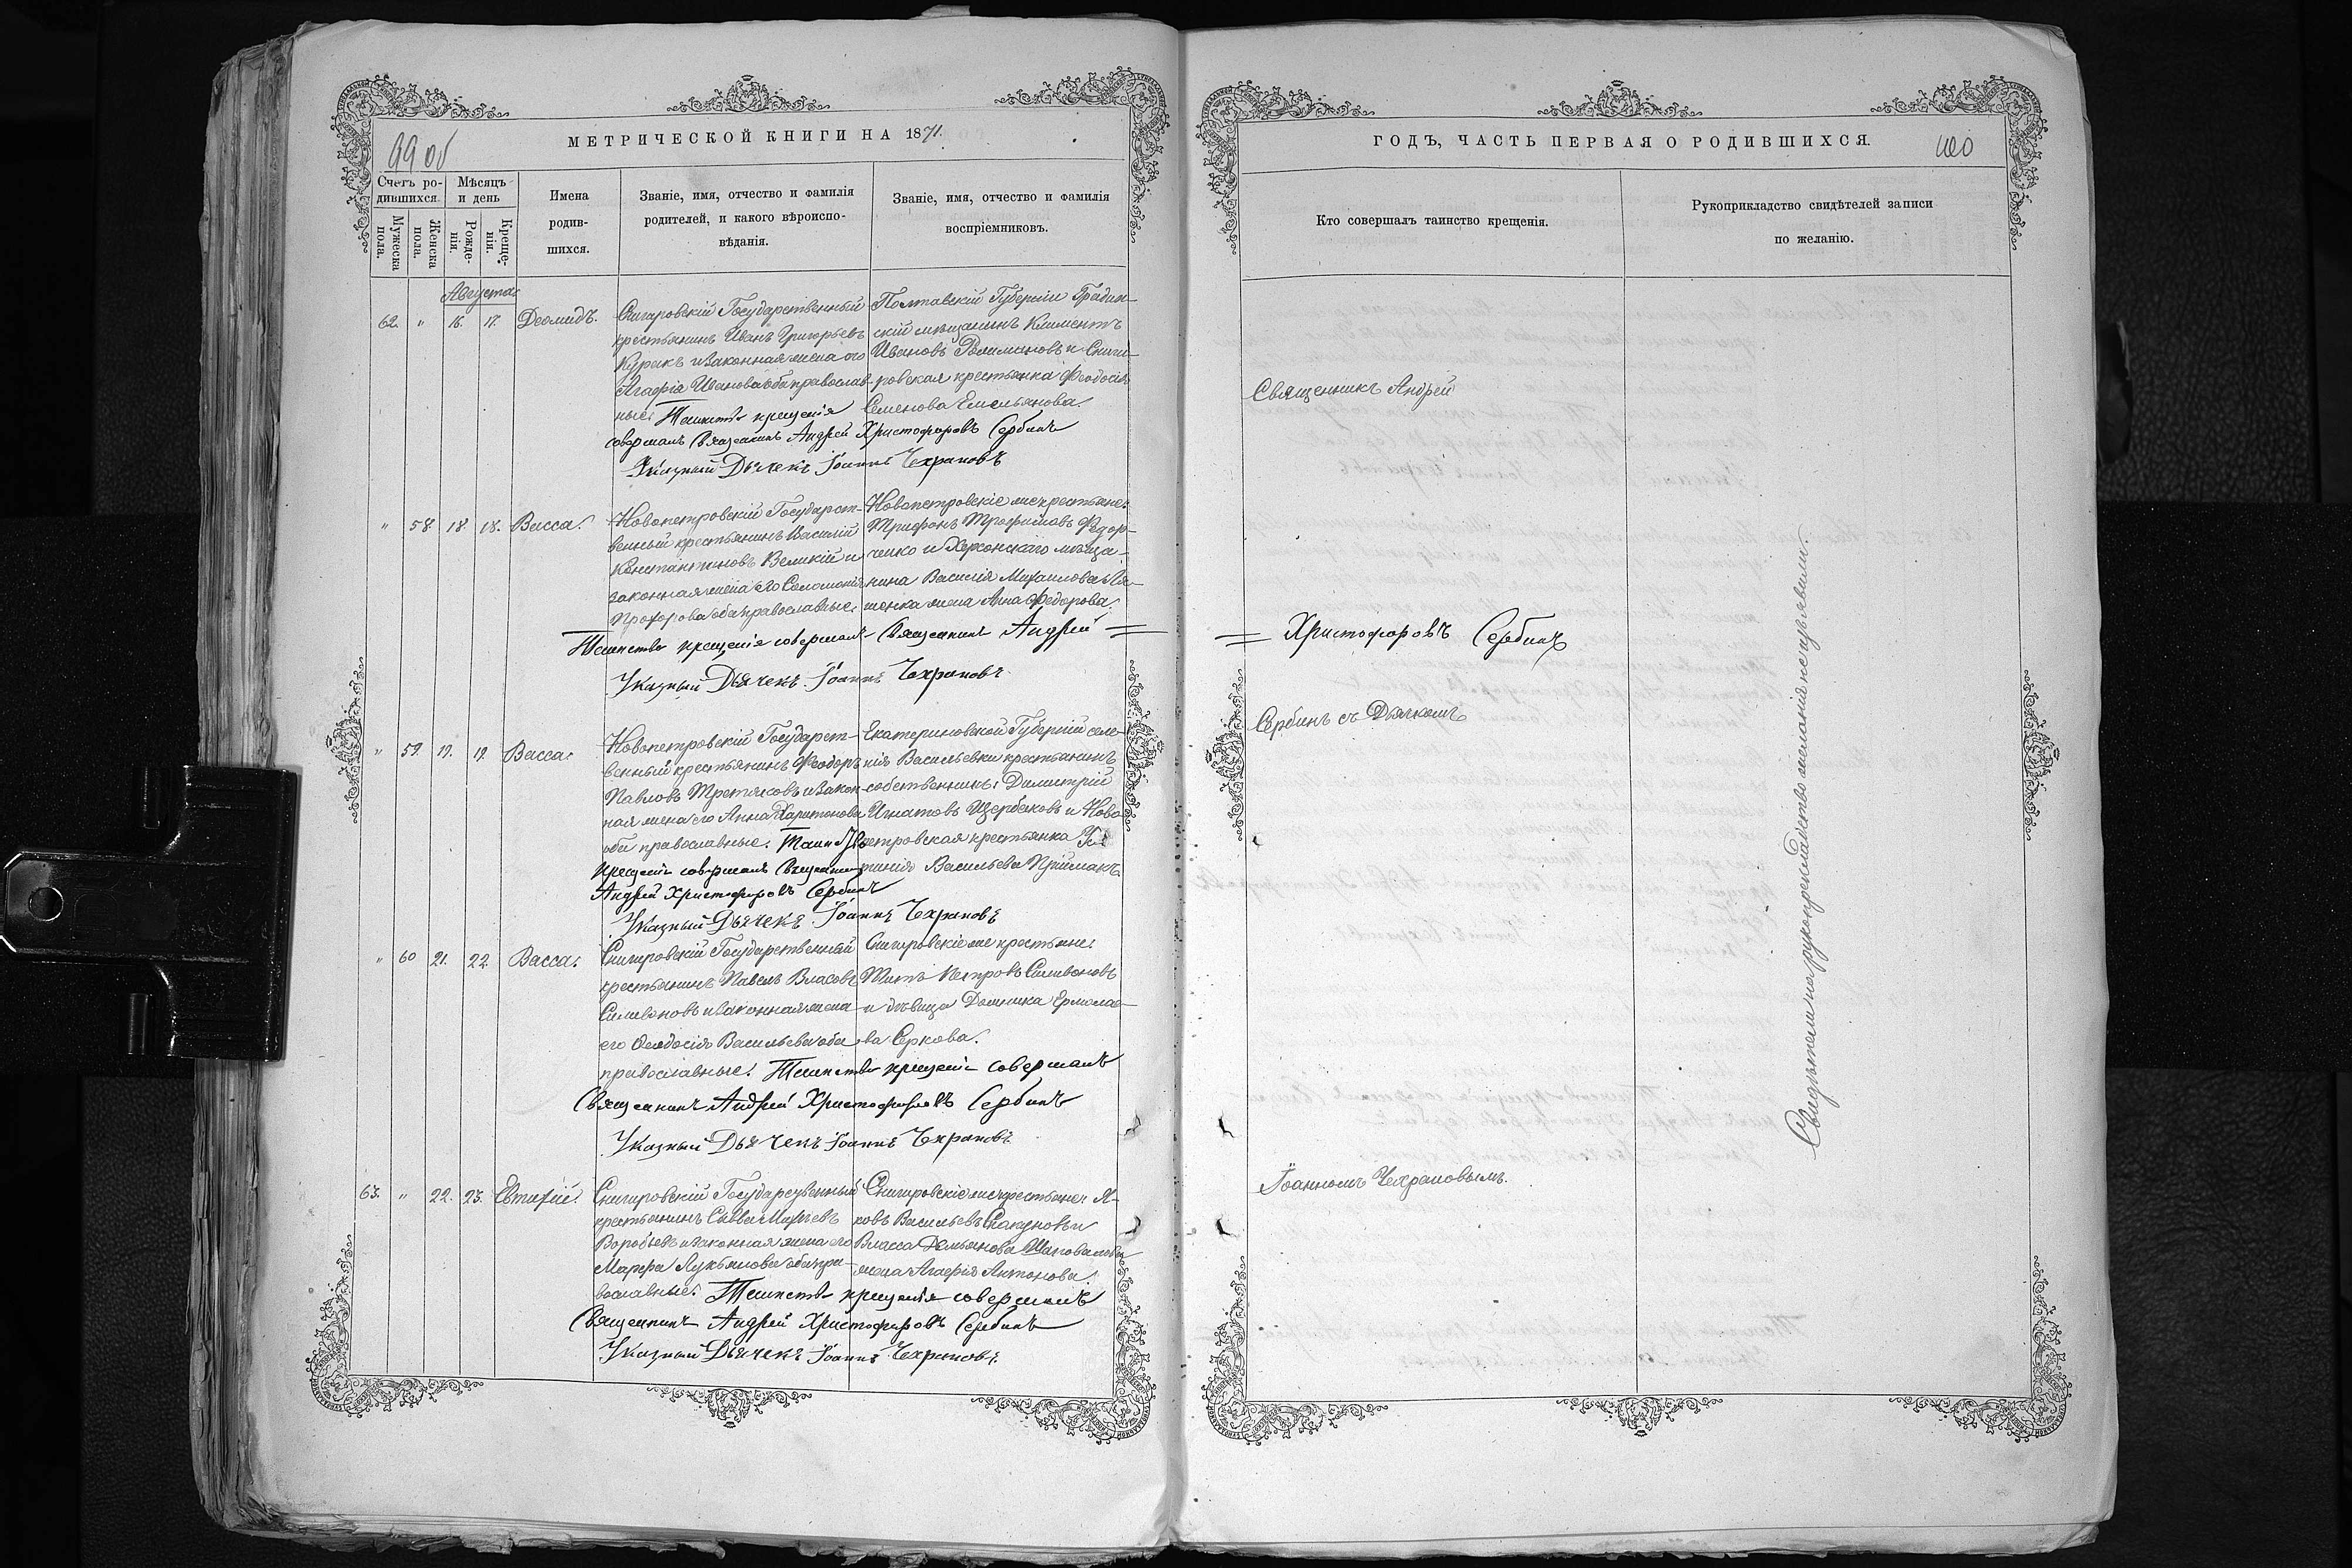 99 об
МЕТРИЧЕСКОЙ КНИГИ НА 1871.
Счетъ ро-
дившихся.
Мѣсяцъ
и день
Мужеска
пола.
Женска
пола.
Рожде-
нія.
Креще-
нія.
Имена
родив-
шихся.
Званіе, имя, отчество и фамилія
родителей, и какого вѣроиспо-
вѣданія.
Званіе, имя, отчество и фамилія
воспріемниковъ.
Августа
62. " 16. 17. Деомидъ.
Снигировскій Государственный
крестьянинъ Иванъ Григорьевъ
Куракъ и законная жена его
Агафія Иванова оба православ-
ные. Таинство крещенія
Полтавскій Губерніи Градиж-
скій мѣщанинъ Климентъ
Ивановъ и Сниги-
ровская крестьянка Феодосія
Семенова Емельянова.
совершалъ Священникъ Андрей Христофоровъ Сербинъ
Указный Дьячекъ Іоаннъ Чехрановъ
" 58. 18. 18. Васса.
Новопетровскій Государст-
венный крестьянинъ Василій
Константиновъ Великій и
законная жена его Соломонія
Прохорова оба православные.
Новопетровскіе же крестьяне:
Трифонъ Трофимовъ Федор-
ченко и Херсонскаго мѣща-
нина Василія Михаилова
жена Анна Федорова.
Таинство крещенія совершалъ Священникъ Андрей =
Указный Дьячекъ Іоаннъ Чехрановъ
" 59. 19. 19. Васса.
Новопетровскій Государст-
венный крестьянинъ Феодоръ
Павловъ Третяковъ и закон-
ная жена его Анна Харитонова
оба православные. Таинство
крещенія совершалъ Священникъ
Андрей Христофоровъ Сербинъ
Екатериновской Губерніи селе-
нія Васильевки крестьянинъ
собственникъ: Димитрій
Игнатовъ Щербаковъ и Ново-
петровская крестьянка
Васильева Пріймакъ
Указный Дьячекъ Іоаннъ Чехрановъ
" 60 21. 22. Васса.
Снигировскій Государственный
крестьянинъ Павелъ Власовъ
Силивоновъ и законная жена
его Феодосія Васильева оба
православные. Таинство крещенія совершалъ
Снигировскіе же крестьяне:
Титъ Петровъ Силивоновъ
и дѣвица Домника Ермолае-
ва Серкова.
Священникъ Андрей Христофоровъ Сербинъ
Указный Дьячекъ Іоаннъ Чехрановъ
63. " 22. 23. Евтихій.
Снигировскій Государственный
крестьянинъ Савва
Воробьевъ и законная жена его
Марфа Лукьянова оба пра-
вославные. Таинство крещенія совершалъ
Снигировскіе же крестьяне: Я-
ковъ Васильевъ Скакуновъ и
Власса Демьянова Шаповалова
жена Агафія Антонова.
Священникъ Андрей Христофоровъ Сербинъ
Указный Дьячекъ Іоаннъ Чехрановъ.
ГОДЪ, ЧАСТЬ ПЕРВАЯ О РОДИВШИХСЯ.
100
Кто совершалъ таинство крещенія.
Рукоприкладство свидѣтелей записи
по желанію.
Священникъ Андрей
= Христофоровъ Сербинъ
Сербинъ съ Дьячкомъ
Іоанномъ Чехрановымъ.
Свидѣтели на рукоприкладство желанія не изъявили.